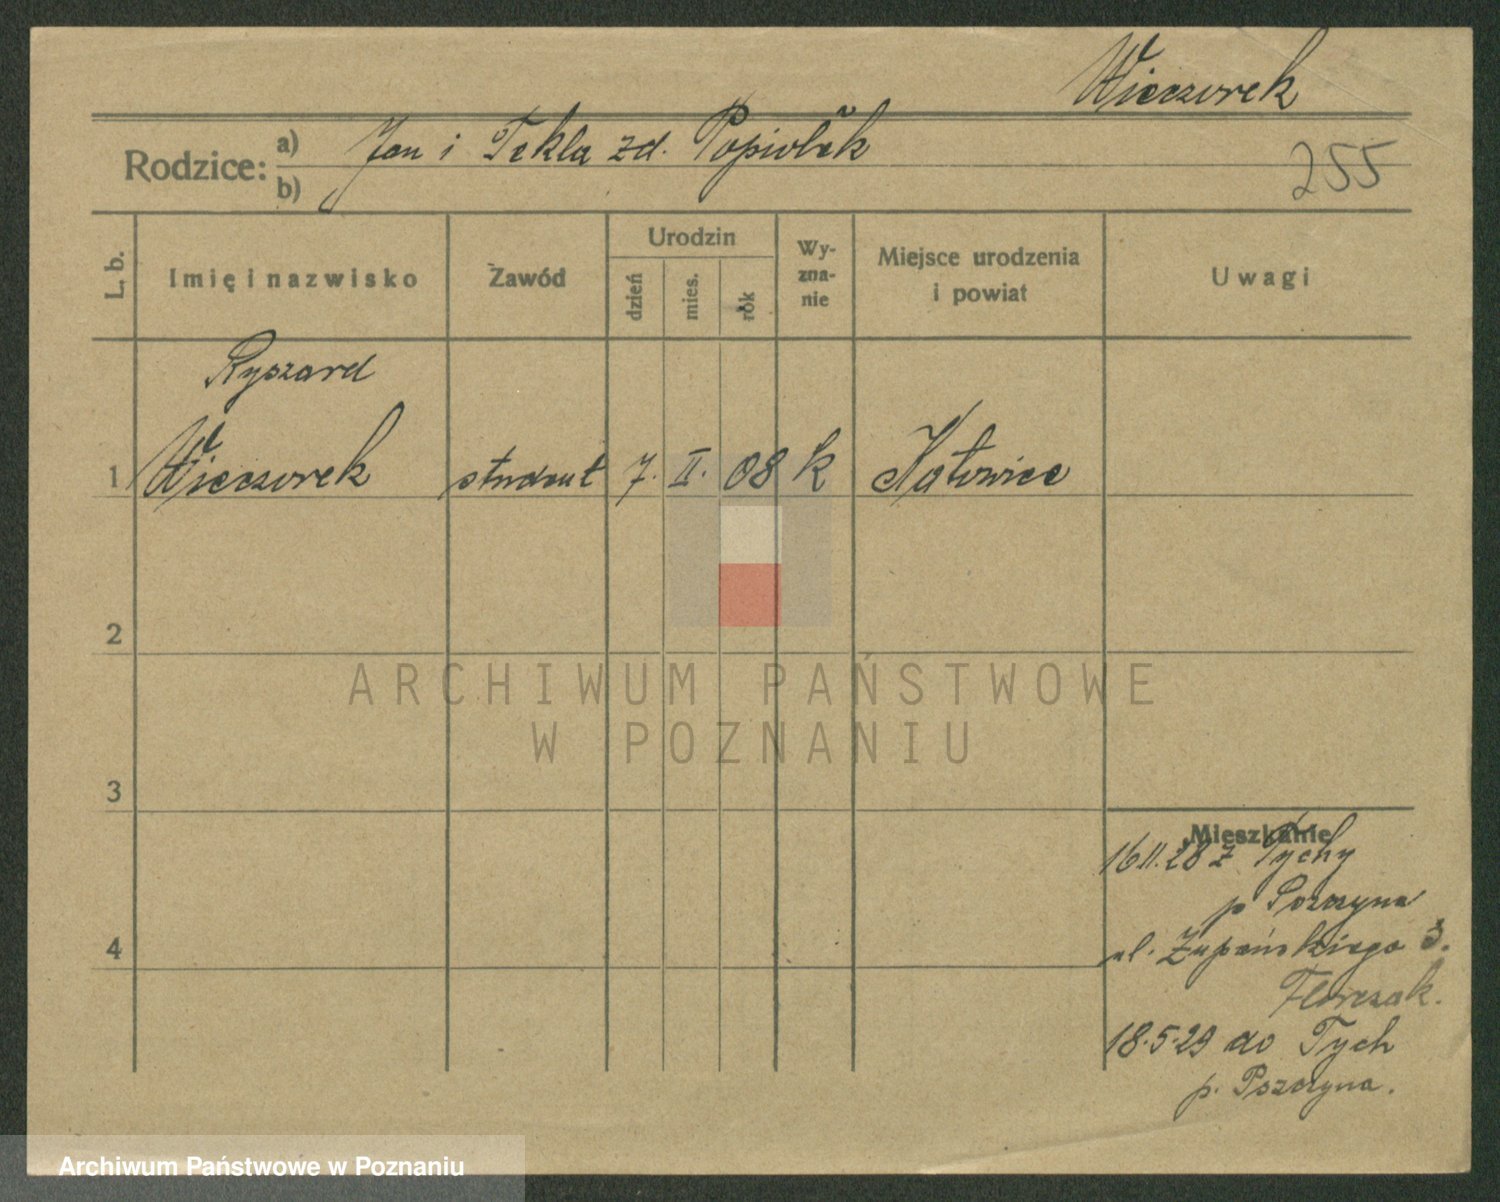 Wieczorek
Rodzice: a) Jan i Tekla zd. Popiołek
b)
255
L. b.
Imię i nazwisko
Zawód
Urodzin
dzień
mies.
rok
Wy-
zna-
nie
Miejsce urodzenia
i powiat
Uwagi
Ryszard
1 Wieczorek student 7. II. 08 k Katowice
2
3
4
Mieszkanie
16.11.28 z Tychy
p Pszczyna
ul. Żupańskiego 3.
Florczak.
18.5.29 do Tych
p. Pszczyna.
ARCHIWUM PAŃSTWOWE
W POZNANIU
Archiwum Państwowe w Poznaniu